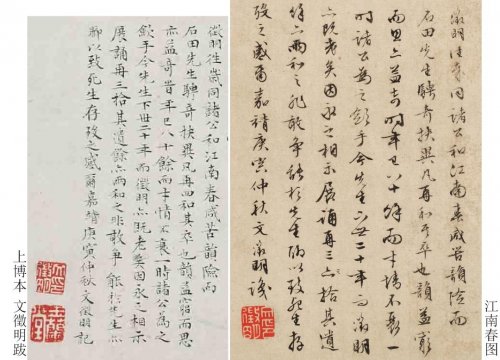 江南春图
徵明往歲同諸公和江南春咸苦韻險而
石田先生騁奇抉異凡再和其卒也韻益窮
而思益奇時年已八十餘而才情不衰一
時諸公為之斂手今先生下世二十年而徵明
亦既老矣因永之相示展誦再三拾其遺
餘亦兩和之非敢爭能於先生聊以致死生存
歿之感爾嘉靖庚寅仲秋文徵明識
徵明往歲同諸公和江南春咸苦韻險而
石田先生騁奇抉異凡再四和其卒也韻益窮而思
亦益奇時年已八十餘而才情不衰一時諸公為之
斂手今先生下世二十年而徵明亦既老矣因永之相示
展誦再三拾其遺餘亦兩和之非敢爭能於先生亦
聊以致死生存歿之感爾嘉靖庚寅仲秋文徵明記
上博本 文徵明跋